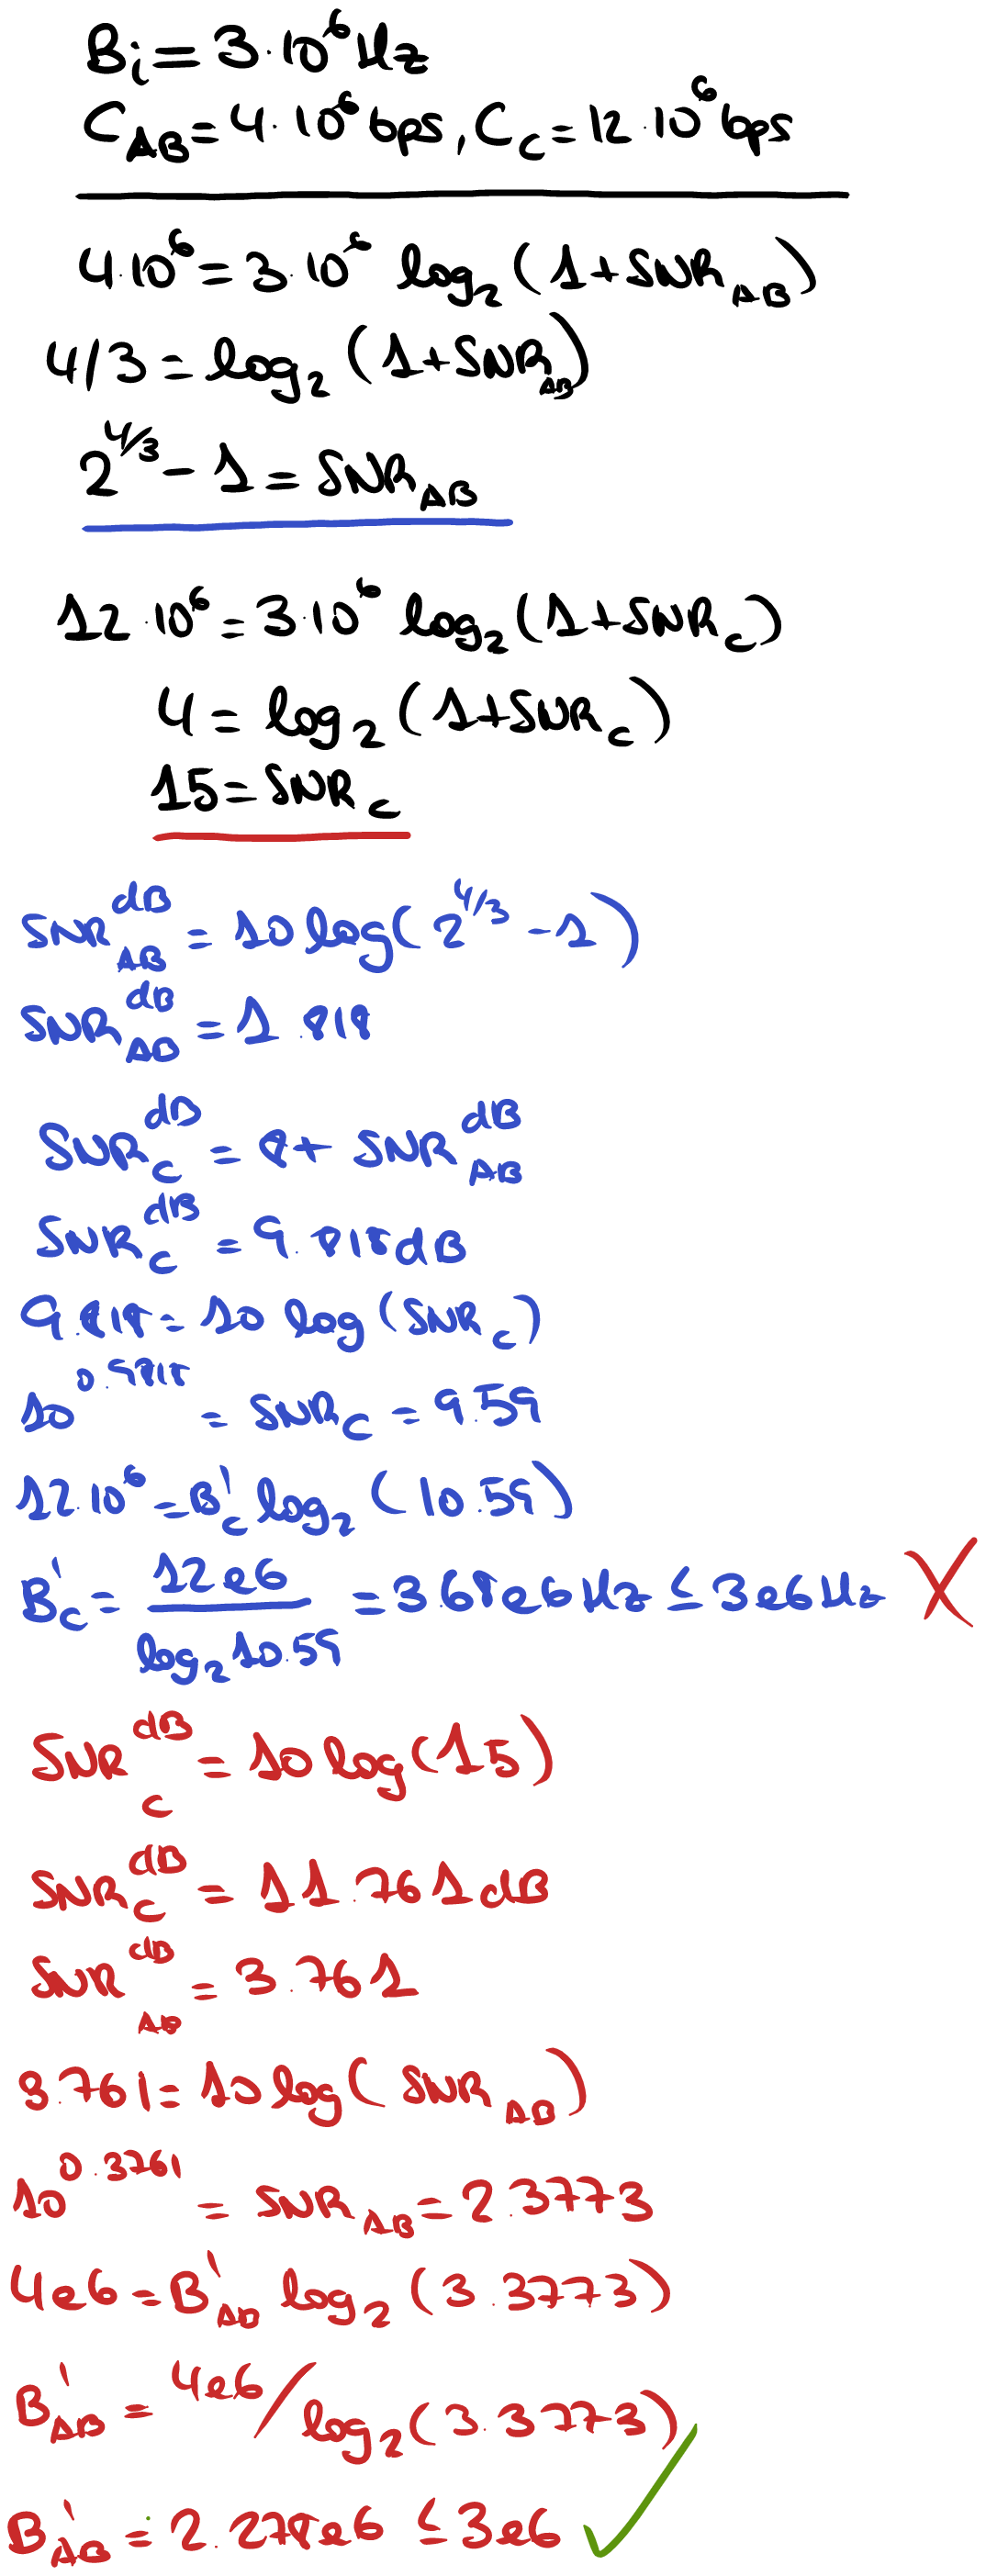 B_i = 3·10^6 Hz
C_AB = 4·10^6 bps, C_C = 12·10^6 bps
4·10^6 = 3·10^6 log_2 (1+SNR_AB)
4/3 = log_2 (1+SNR_AB)
2^4/3 - 1 = SNR_AB
12·10^6 = 3·10^6 log_2 (1+SNR_C)
4 = log_2 (1+SNR_C)
15 = SNR_C
SNR_AB^dB = 10 log(2^4/3 - 1)
SNR_AB^dB = 1.818
SNR_C^dB = 8 + SNR_AB^dB
SNR_C^dB = 9.818 dB
9.818 = 10 log (SNR_C)
10^0.9818 = SNR_C = 9.59
12·10^6 = B'_C log_2 (10.59)
B'_C = 12e6 / log_2 10.59 = 3.68e6 Hz ≤ 3e6 Hz X
SNR_C^dB = 10 log(15)
SNR_C^dB = 11.761 dB
SNR_AB^dB = 3.761
3.761 = 10 log( SNR_AB)
10^0.3761 = SNR_AB = 2.3773
4e6 = B'_AB log_2 (3.3773)
B'_AB = 4e6 / log_2 (3.3773)
B'_AB = 2.278e6 ≤ 3e6 ✓